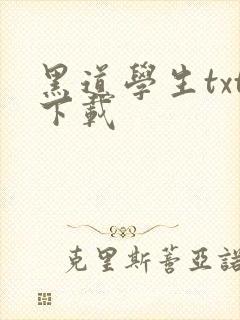 黑道學生txt
下載
克里斯蒼亞諾